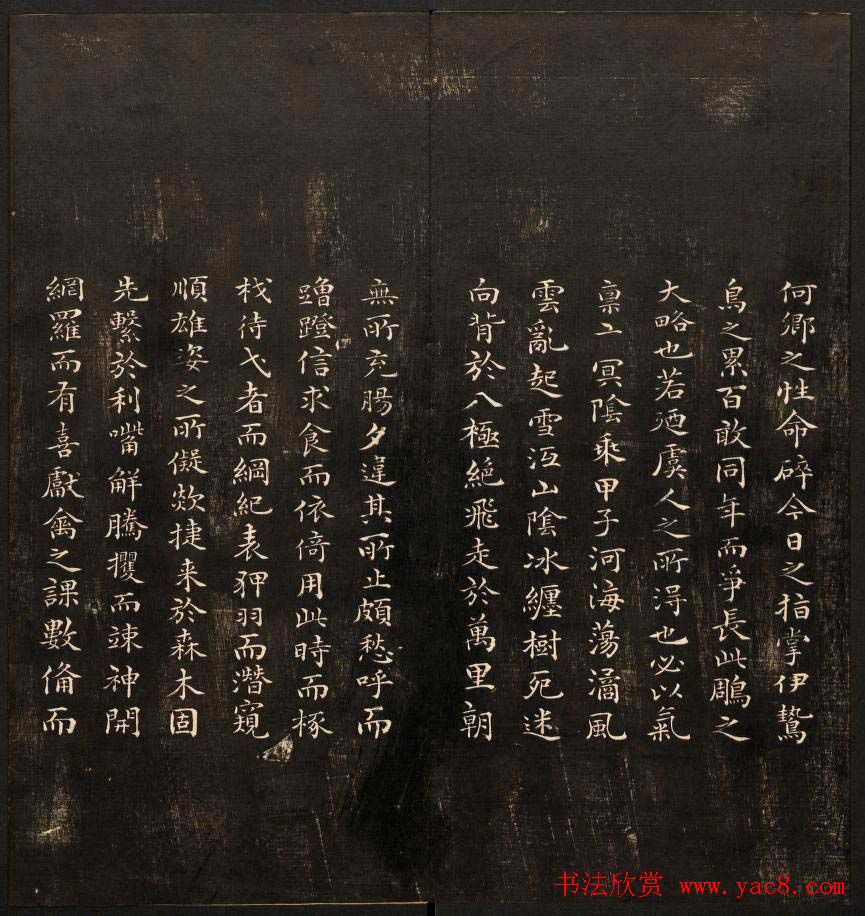 何鄉之性命碎今日之指掌伊鷙
鳥之累百敢同年而爭長此鵰之
大略也若廼虞人之所得也必以氣
稟二冥陰乘甲子河海蕩潏風
雲亂起雪沍山陰冰纏樹死迷
向背於八極絕飛走於萬里朝
無所充腸夕違其所止頗愁呼而
蹭蹬信求食而依倚用此時而椓
杙待弋者而綱紀表狎羽而潛窺
順雄姿之所儗欻捷来於森木固
先繫於利嘴解騰攫而竦神開
網羅而有喜獻禽之課數俻而
书法欣赏 www.yac8.com